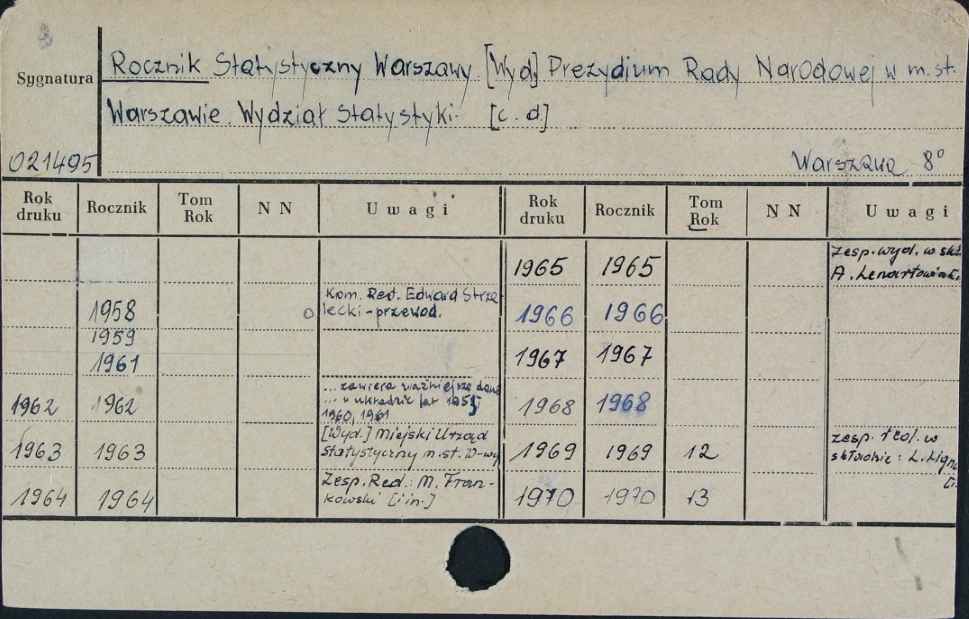 Sygnatura
Rocznik Statystyczny Warszawy [Wyd.] Prezydium Rady Narodowej w m.st.
Warszawie. Wydział Statystyki. [c.d.]
021495
Warszawa 8°
Rok druku Rocznik Tom Rok N N Uwagi Rok druku Rocznik Tom Rok N N Uwagi
1965 1965 Zesp. wyd. w skł.
A.
1958 Kom. Red. Edward Strze-
lecki - przewod. 1966 1966
1959
1961 1967 1967
1962 1962 ... zawiera ważniejsze dane
... w układzie lat
1960, 1961 1968 1968
1963 1963 [Wyd.] Miejski Urząd
Statystyczny m.st. W-wy 1969 1969 12 zesp. red. w
składzie: L.
1964 1964 Zesp. Red.: M. Fran-
kowski [i in.] 1970 1970 13